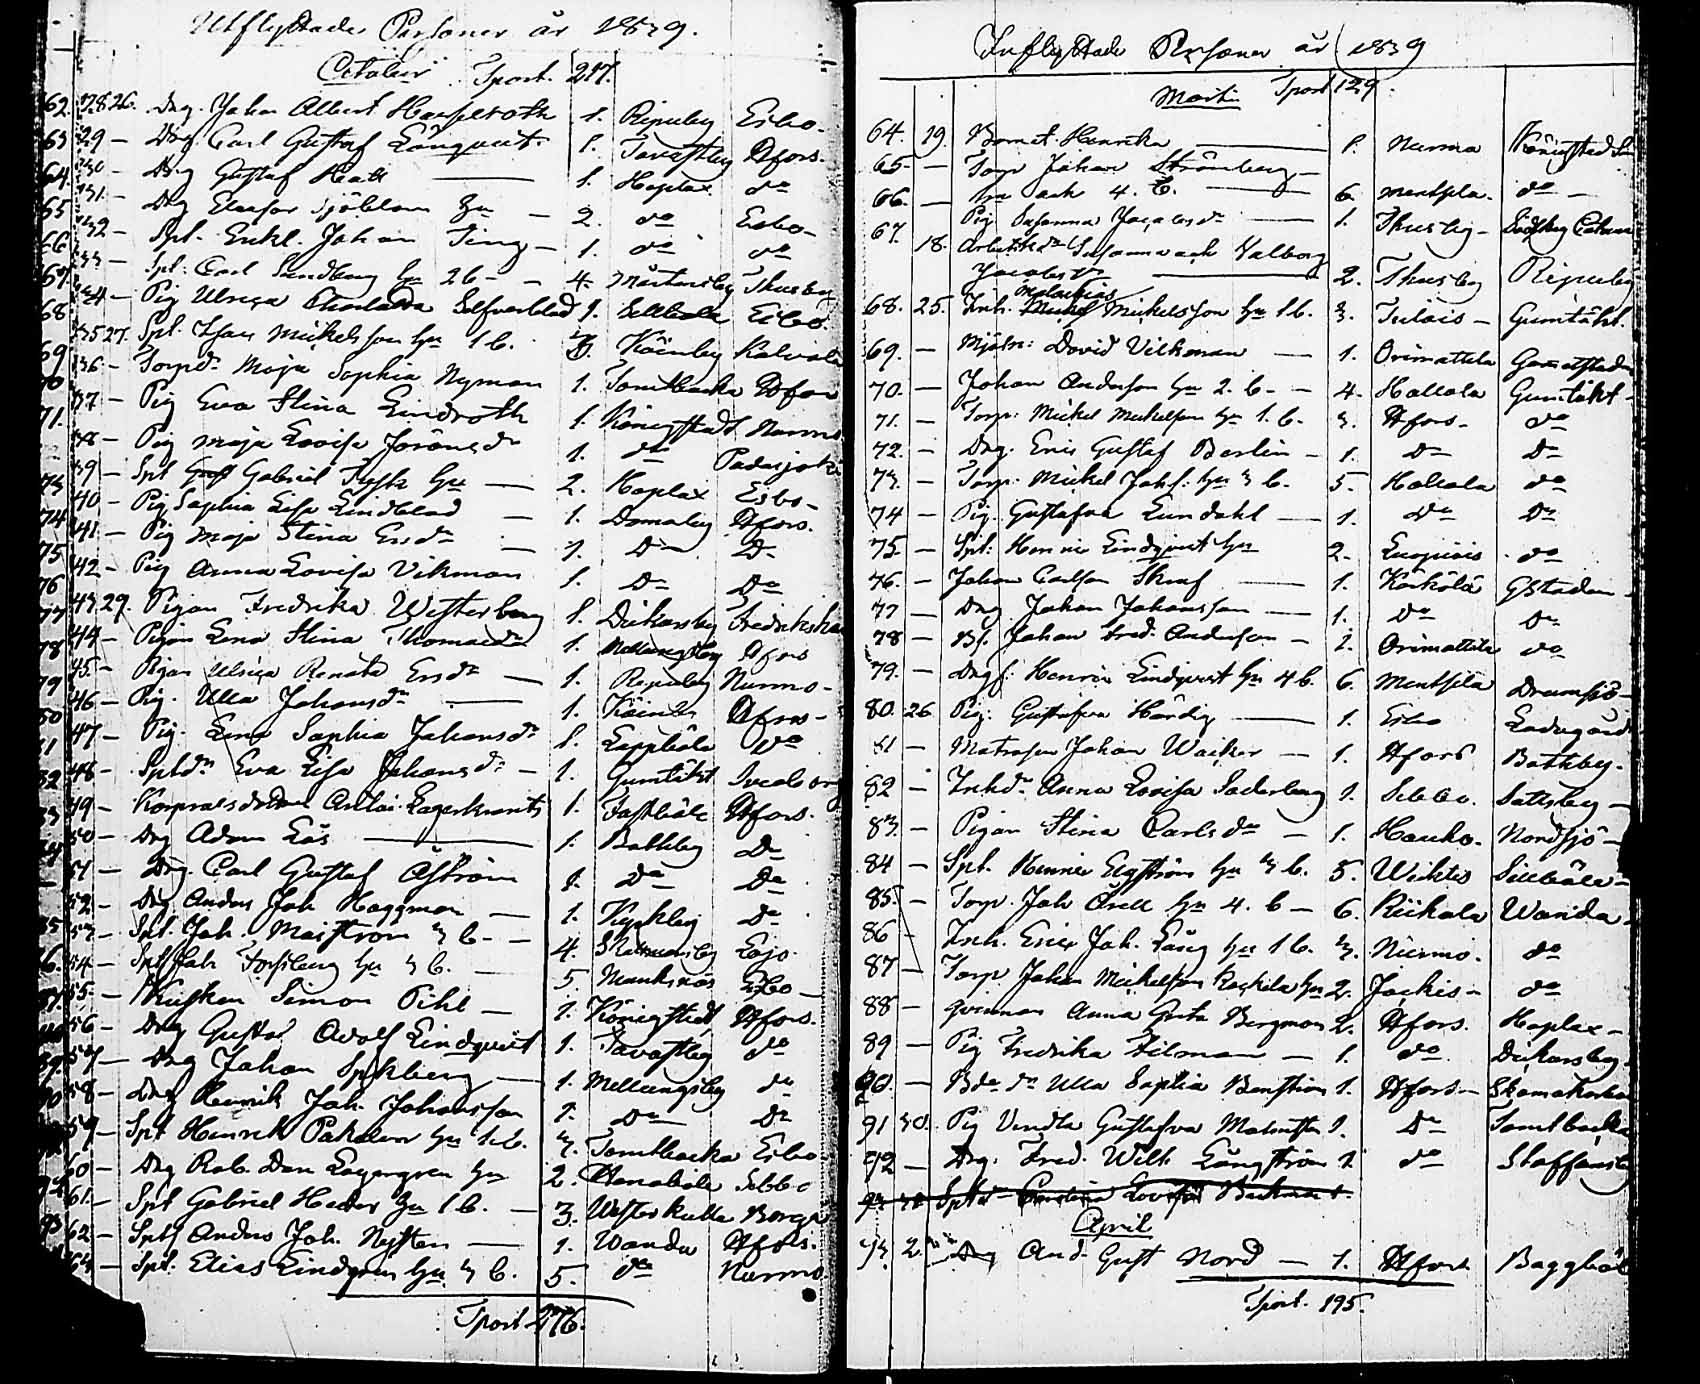 Utflyttade Personer år 1839.
October Tport. 217.
62. 228 26. Dng. Johan Albert 1. Ripuby Esbo.
63 29 — Dng. Carl Gustaf Lönqvist. 1. Tavastby Hfors.
64. 230 — Dng Gustaf 1. Hoplax do
65 231 — Dng Sjöblom Hu — 2. do Esbo
66 232 — Spl. Enkl. Johan Ting — 1. do do
67 233 — Spl: Carl Sundberg Hu 2b — 4. Mårtensby Thusby
68 234 — Pig Ulrica Charlotta Selfverblad 1. Esbo.
69 235 27. Spl. Isac Mickelsson Hu 1 b. 3. Köinby Kalvola
70 236 — Torpdr Maja Sophia Nyman 1. Tomtbacka Hfors
71. 237 — Pig Eva Stina Lindroth 1. Königstedt Nurmi
238 — Pig Maja Lovisa Jöransdr 1. do Padasjoki
73 239 — Spl Gabriel Hu — 2. Hoplax Esbo —
74 240 — Pig Sophia Lisa Lindblad — 1. Domarby Hfors.
75 241 — Pig Maja Stina Ersdr — 1. Do Do
76 242 — Pig Anna Lovisa Vikman 1. Do Do
77 243 29. Pigan Fredrika Westerberg 1. Dickursby Fredriksham
78 244 — Pigan Lena Stina Thomasdr 1. Mellungsby Hfors
79 245 — Pigan Ulrica Renata Ersdr — 1. Ripuby Nurmi —
80 246 — Pig. Ulla Johansdr 1. Köinby Hfors —
81 247 — Pig. Lena Sophia Johansdr 1. Lappböle do
82 248 — Spldr Eva Lisa Johansdr — 1. Gumtäkt Sveaborg
83 249 — Lagerkrants 1. Fastböle Hfors.
84 250 — Dng Adam Lås 1. Botby Do
— 251 — Dng. Carl Gustaf Åström 1. Do Do
252 — Dng Anders Joh Haggman — 1. Kyrkby Do
85 253 — Spl. Joh. Maiström 3 b — 4. Lojo.
86. 254 — Spl Joh Forsberg Hu 3 b. — 5. Munksnäs Esbo —
87 255 — Kusken Simon Pihl — 1. Königstedt Hfors.
256 — Dng Gustaf Adolf Lindqvist 1. Tavastby do
89. 257 — Dng Johan — 1. Mellungsby do
90 258 — Dng Henrik Joh. Johansson 1. Do Do
259 — Spl Henrik Pakalen Hu 1 b. 3. Tomtbacka Esbo
260 — Dng Rob. Dan Lagergren Hu 2. Hanaböle Sibbo
92 261. — Spl Gabriel Hu 1 b. — 3. Westerkulla Borgå
93 262 — Spls Anders Joh. — 1. Wanda Hfors.
263 — Spl. Elias Lindgren Hu 3 b. 5. do Nurmi.
Tport 276.
Inflyttade Personer år 1839
Tport 129.
Martii
64. 19. Barnet Henrika 1. Nurmi Königstedt
65 — Torp Johan Strömberg —
66. — Hu och 4. b. 6. Mentsälä do —
67. Pig Susanna Jacobsdr 1. Thusby —
18. Susanna och Valborg
Jacobsdr 2. Thusby Ripuby
Malachias
68. 25. Inh: Mickel Mickelsson Hu 1 b. 3. Tulois — Gumtäkt.
69. — Mjöln: David Vilkman — 1. Orimattila Gammelstaden
70. — Johan Anderson Hu 2. b — 4. Hollola Gumtäkt —
71. — Torp: Mickel Mickelson Hu 1. b. 3. Hfors — do
72. — Dng. Eric Gustaf Berlin — 1. Do Do
73. — Torp: Mickel Johs: Hu 3 b. 5. Hollola do
74 — Pig. Gustafva Lundahl — 1. Do Do
75 — Spl: Henric Lindqvist Hu 2. Kuopio do
76. — Johan Carlson 1. Kärkölä Gstaden —
77 — Dng Johan Johansson — 1. Do Do
78 — Johan Fred. Anderson — 1. Orimattila do
79. — Henric Lindqvist Hu 4 b. 6. Mentsälä Drumsjö —
80. 26 Pig: Gustafva Hårdig 1. Esbo Ladugård
81 — Matrosen Johan Waiker — 1. Hfors Botby —
82 — Inhdr Anna Lovisa Soderberg 1. Sibbo. Sottisby —
83. — Pigan Stina Carlsdr — 1. Hauho. Nordsjö —
84 — Spl. Henric Elgström Hu 3 b. 5. Wichtis Sillböle —
85. — Torp. Joh Örell Hu 4. b — 6. Wanda —
86 — Inh. Eric Joh. Lång Hu 1 b. 3. Nurmi. do
87 — Torp Johan Mickelson Hu 2. Jockis — do
88 — qvinnan Anna Greta Bergman 2. Hfors. Hoplax —
89 — Pig Fredrika Tilman — 1. do Dickursby.
90. — Ulla Sophia 1. Hfors — Skomakarböle
91 30. Pig Vendla Gustafva 1. Do Tomtbacka
92 — Dng: Fred. Wilh. Långström 1. do Staffansby
93 Lovisa Backman 1.
April
93. 2. And. Gust Nord — 1. Hfors Baggböle
Tport. 195.